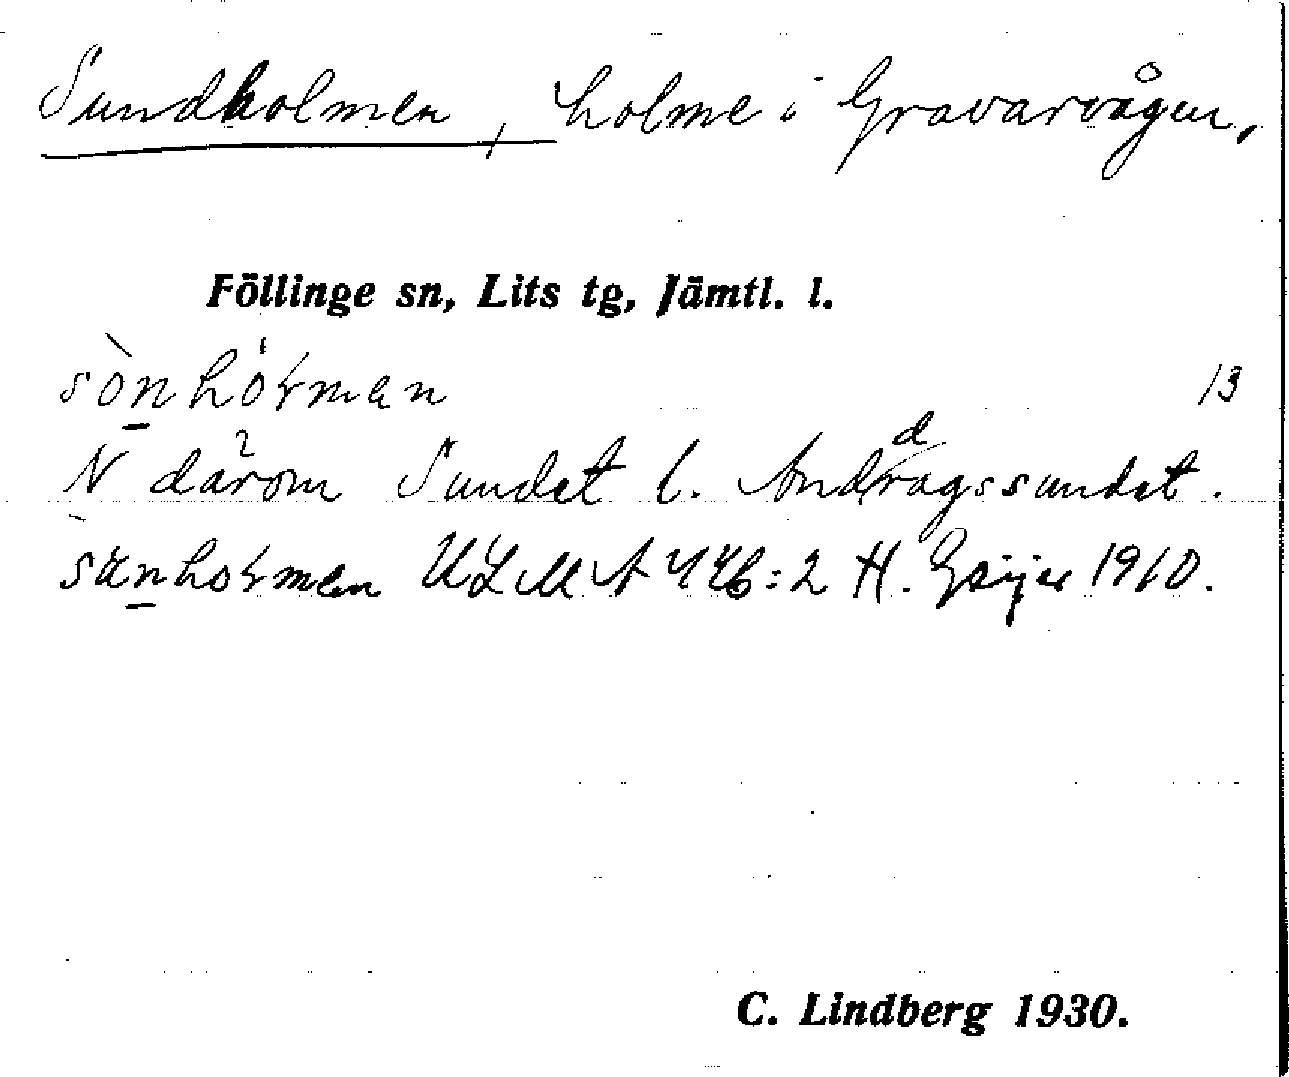 Sundholmen, holme i Gravarvågen,
Föllinge sn, Lits tg, Jämtl. l.
sònhórman 13
N därom Sundet l. Anddragssundet.
sànhorman ULMA 446:2 H. Geijer 1910.
C. Lindberg 1930.